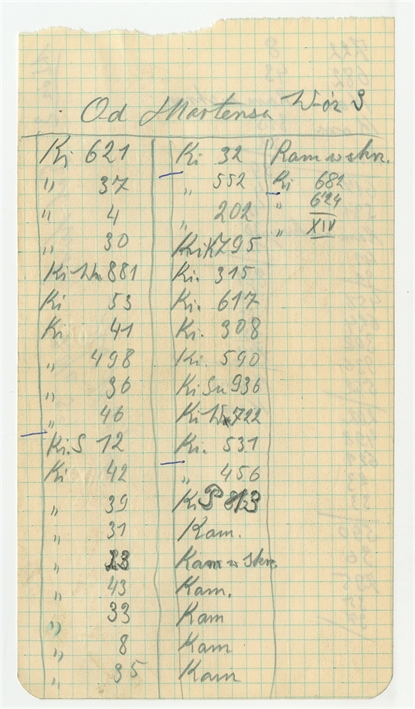 Od Martensa Wór 3
Ki 621
" 37
" 4
" 30
Ki Wn 881
Ki 53
Ki 41
" 498
" 36
" 46
Ki.S 12
Ki 42
" 39
" 31
" 23
" 43
" 33
" 8
" 35
Ki 32
" 552
" 202
KriK 795
Ki. 315
Ki. 617
Ki. 308
Ki. 590
Ki Sn 936
Ki Wn 722
Ki. 531
" 456
Ki P 813
Kam.
Kam w skrz.
Kam.
Kam
Kam
Kam
Kam w skrz.
Ki 682
" 624
" XIV